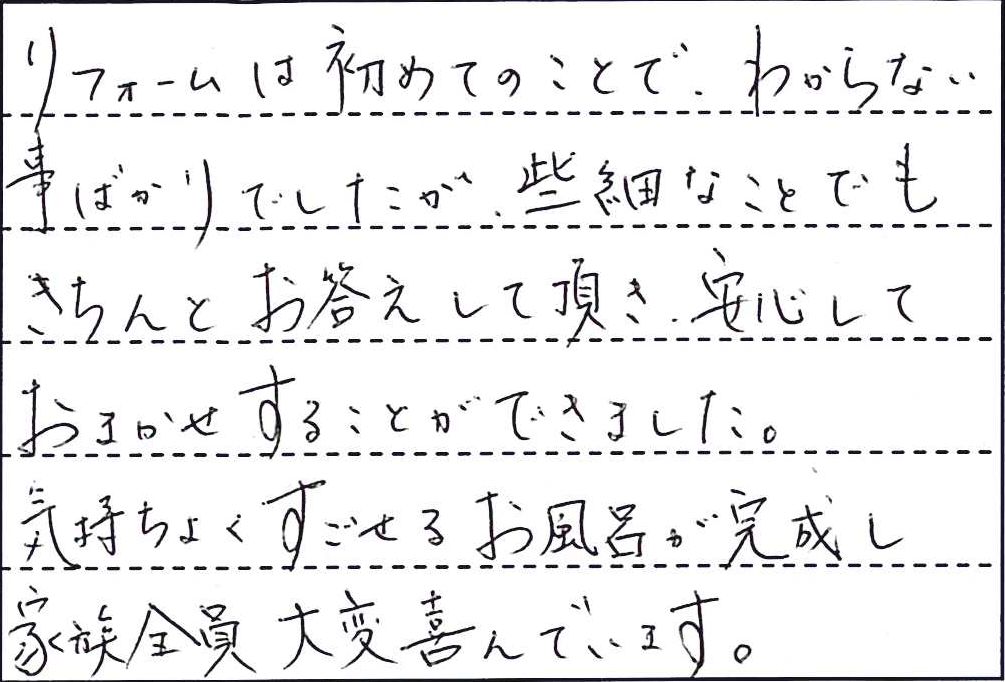 リフォームは初めてのことで、わからない
事ばかりでしたが、些細なことでも
きちんとお答えして頂き、安心して
おまかせすることができました。
気持ちよくすごせるお風呂が完成し
家族全員大変喜んでいます。